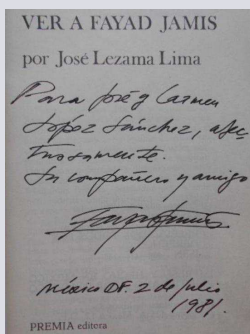 VER A FAYAD JAMIS
por José Lezama Lima
Para José y Carmen
López Sánchez, afec-
tuosamente.
Su compañero y amigo
Fayad Jamís
México DF. 2 de julio
1981.
PREMIA editora